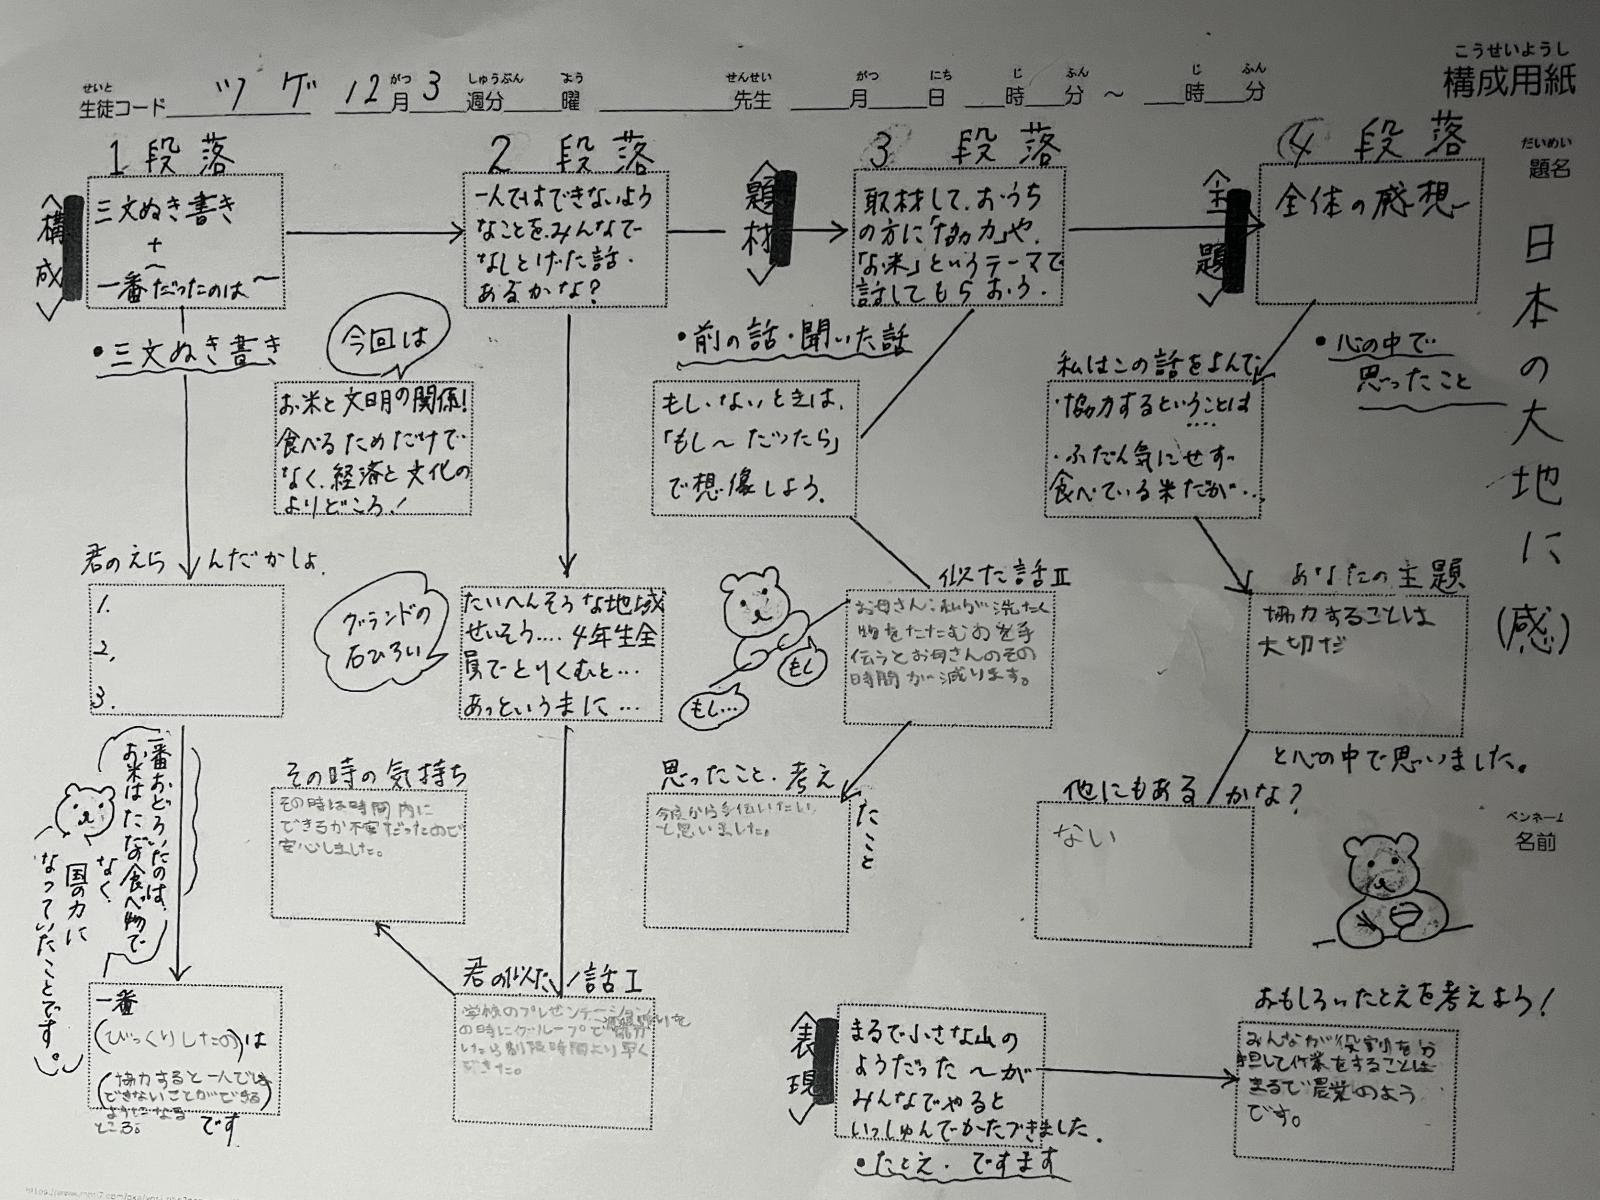 こうせいようし
構成用紙
せいと
生徒コード ツゲ 12月3週分 曜 先生 月 日 時 分 ～ 時 分
がつ しゅうぶん よう せんせい がつ にち じ ふん じ ふん
だいめい
題名
日本の大地に(感)
ペンネーム
名前
1段落
〈構成〉
三文ぬき書き
+
一番だったのは～
・三文ぬき書き
今回は
お米と文明の関係!
食べるためだけで
なく、経済と文化の
よりどころ!
君のえらんだかしょ
1.
2.
3.
一番おどろいたのは、
お米はただの食べ物で
なく
国の力に
なっていたことです。
一番
(びっくりしたの)は
(協力すると一人では
できないことができる)
ようになる
ところ。
です
2段落
一人ではできないよう
なことを、みんなで
なしとげた話・
あるかな?
グランドの
石ひろい
たいへんそうな地域
せいそう‥‥4年生全
員でとりくむと…
あっというまに…
君の似た話I
学校のプレゼンテーション
の時にグループで
したら制限時間より早く
できた。
その時の気持ち
その時は時間内に
できるか不安だったので
安心しました。
3段落
〈題材〉
取材して、おうち
の方に「協力」や、
「お米」というテーマで
話してもらおう。
・前の話・聞いた話
もし、ないときは、
「もし～だったら」
で想像しよう。
もし
もし…
似た話II
お母さん:私が洗たく
物をたたむのを手
伝うとお母さんのその
時間が減ります。
思ったこと、考えたこと
今度から手伝いたい
と思いました。
4段落
〈主題〉
全体の感想
・心の中で
思ったこと
私はこの話をよんで、
・協力するということは
‥‥
・ふだん気にせず
食べている米だが…
あなたの主題
協力することは
大切だ
と心の中で思いました。
他にもあるかな?
ない
〈表現〉
まるで小さな山の
ようだった～が
みんなでやると
いっしゅんでかたづきました。
・たとえ・ですます
おもしろいたとえを考えよう!
みんなが役割を分
担して作業をすることは
まるで農業のよう
です。